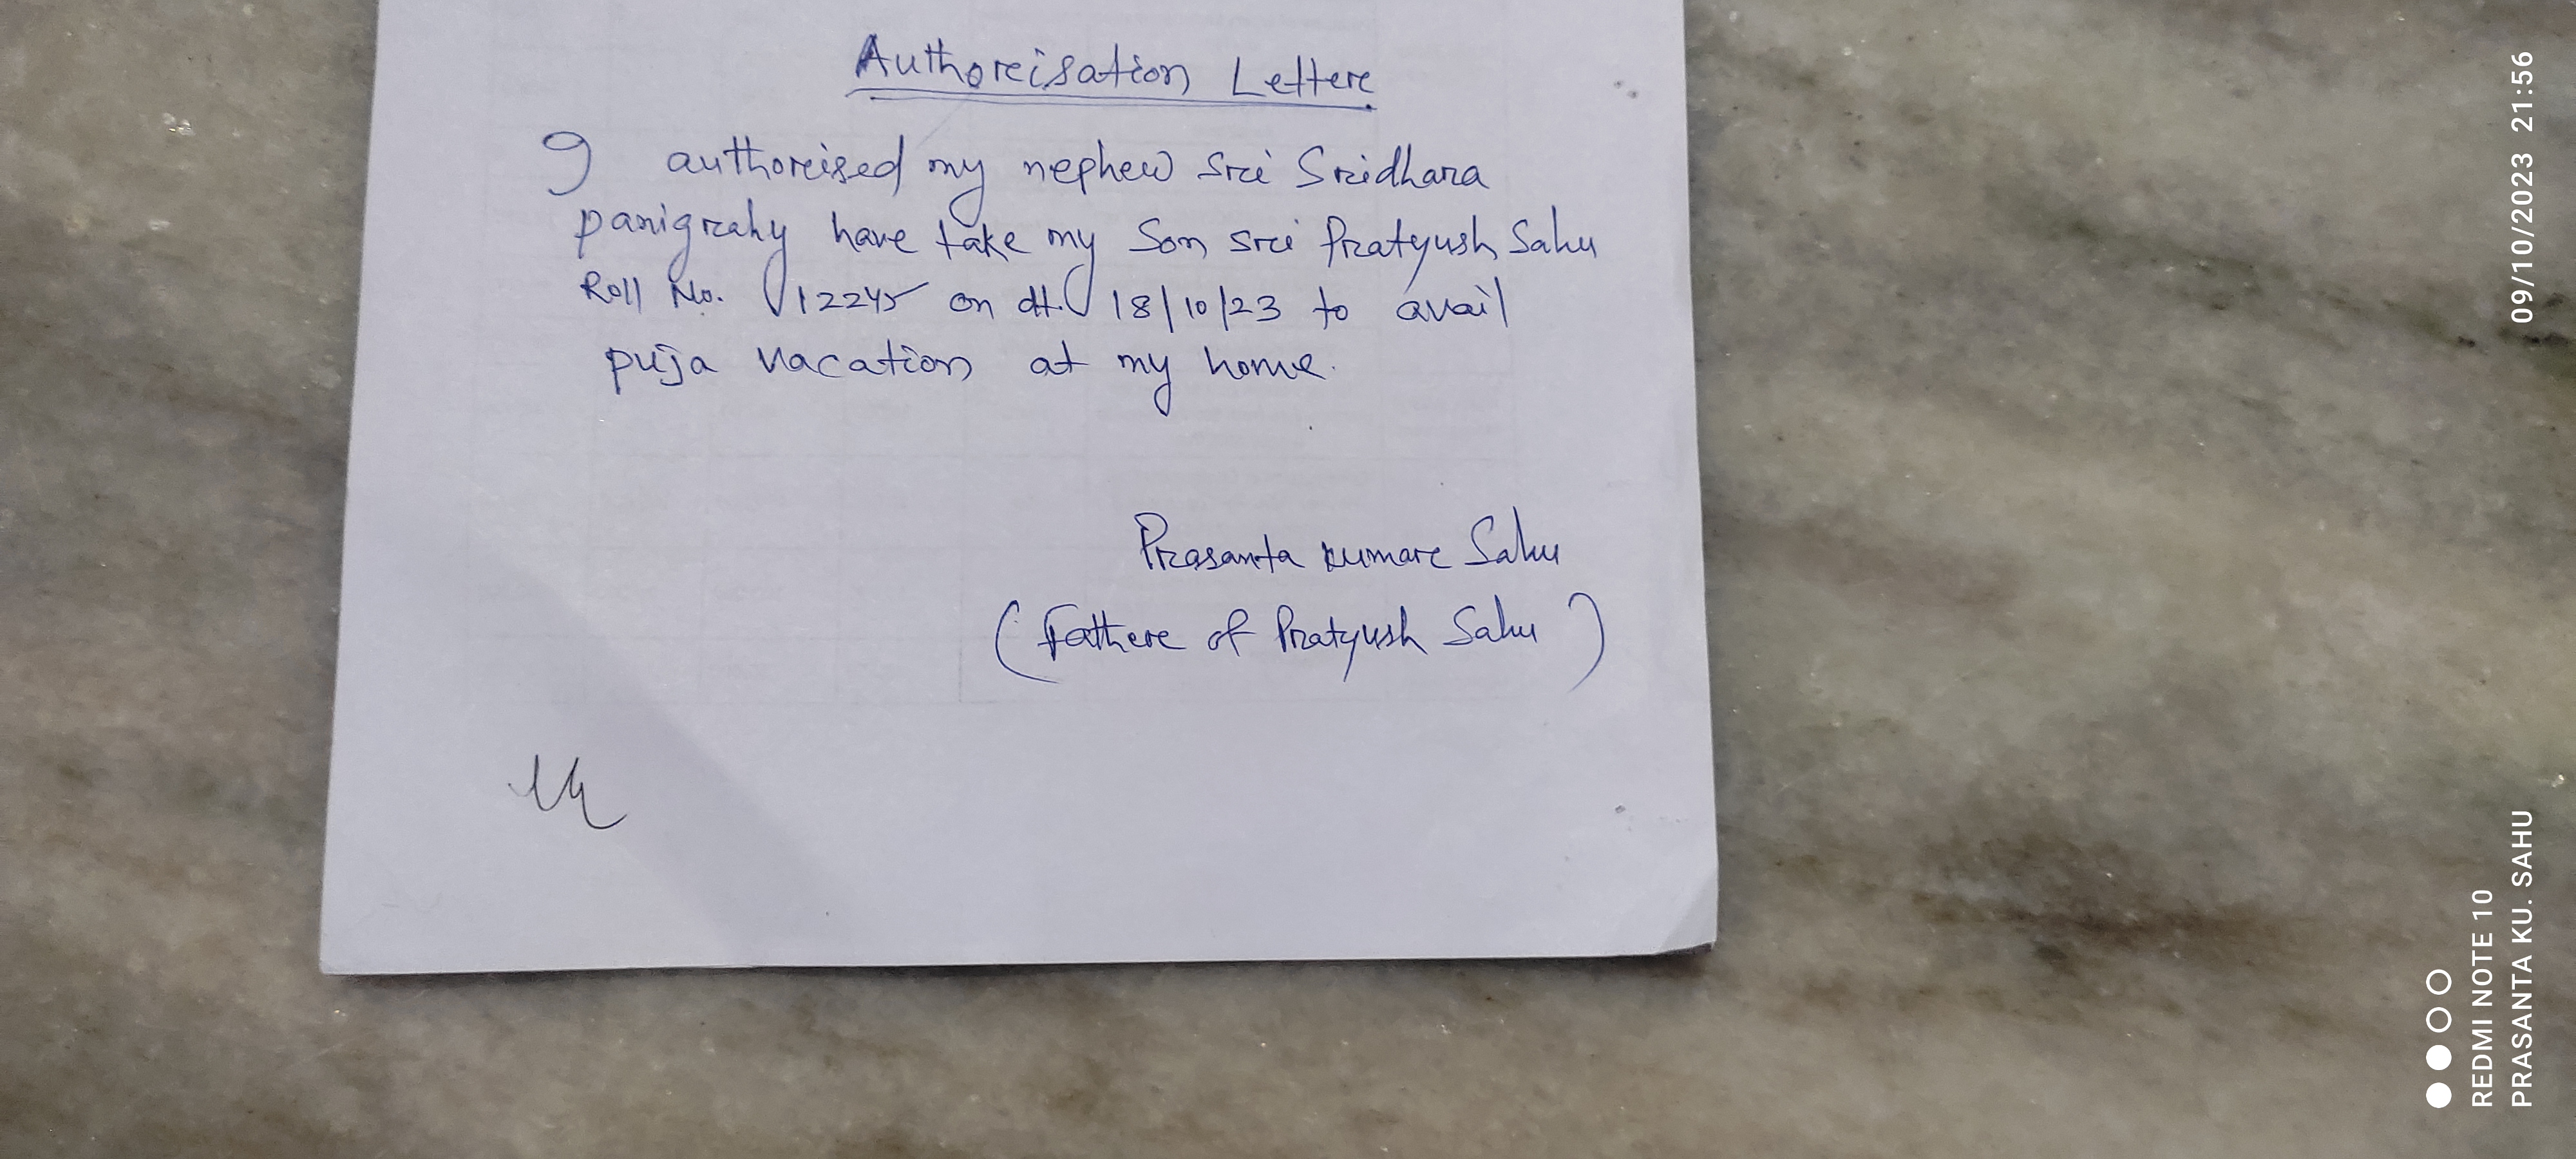 Authorisation Letter
I authorised my nephew Sri Sridhara
panigrahy have take my Son Sri Pratyush Sahu
Roll No. 12245 on dt. 18/10/23 to avail
puja vacation at my home.
Prasanta Kumar Sahu
(Father of Pratyush Sahu)
09/10/2023 21:56
REDMI NOTE 10
PRASANTA KU. SAHU